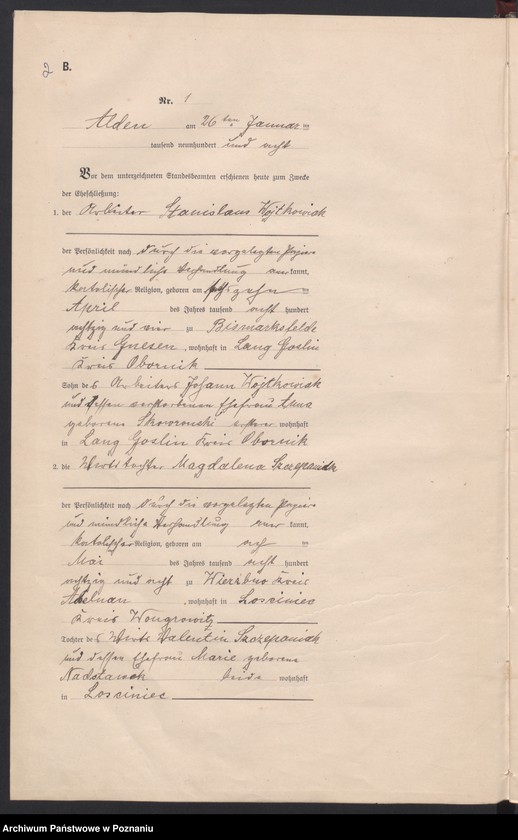 2 B.
Nr. 1
Alden am 26ten Januar
tausend neunhundert und acht
Vor dem unterzeichneten Standesbeamten erschienen heute zum Zwecke
der Eheschließung:
1. der Arbeiter Stanislaus Wojtkowiak
der Persönlichkeit nach durch die vorgelegten Papiere
und mündliche Verhandlung anerkannt,
katolischer Religion, geboren am zehn
April des Jahres tausend acht hundert
achtzig und vier zu Bismarcksfelde
Kreis Gnesen, wohnhaft in Lang Goslin
Kreis Obornik
Sohn des Arbeiters Johann Wojtkowiak
und dessen verstorbenen Ehefrau Anna
geborene Skworonski ersterer wohnhaft
in Lang Goslin Kreis Obornik
2. die Wirtstochter Magdalena Szczepaniak
der Persönlichkeit nach durch die vorgelegten Papiere
und mündliche Verhandlung anerkannt,
katolischer Religion, geboren am
Mai des Jahres tausend acht hundert
achtzig und acht zu Wierzbno Kreis
Adelnau, wohnhaft in Losciniec
Kreis Wongrowitz
Tochter des Wirts Valentin Szczepaniak
und dessen Ehefrau Marie geborene
beide wohnhaft
in Losciniec
Archiwum Państwowe w Poznaniu